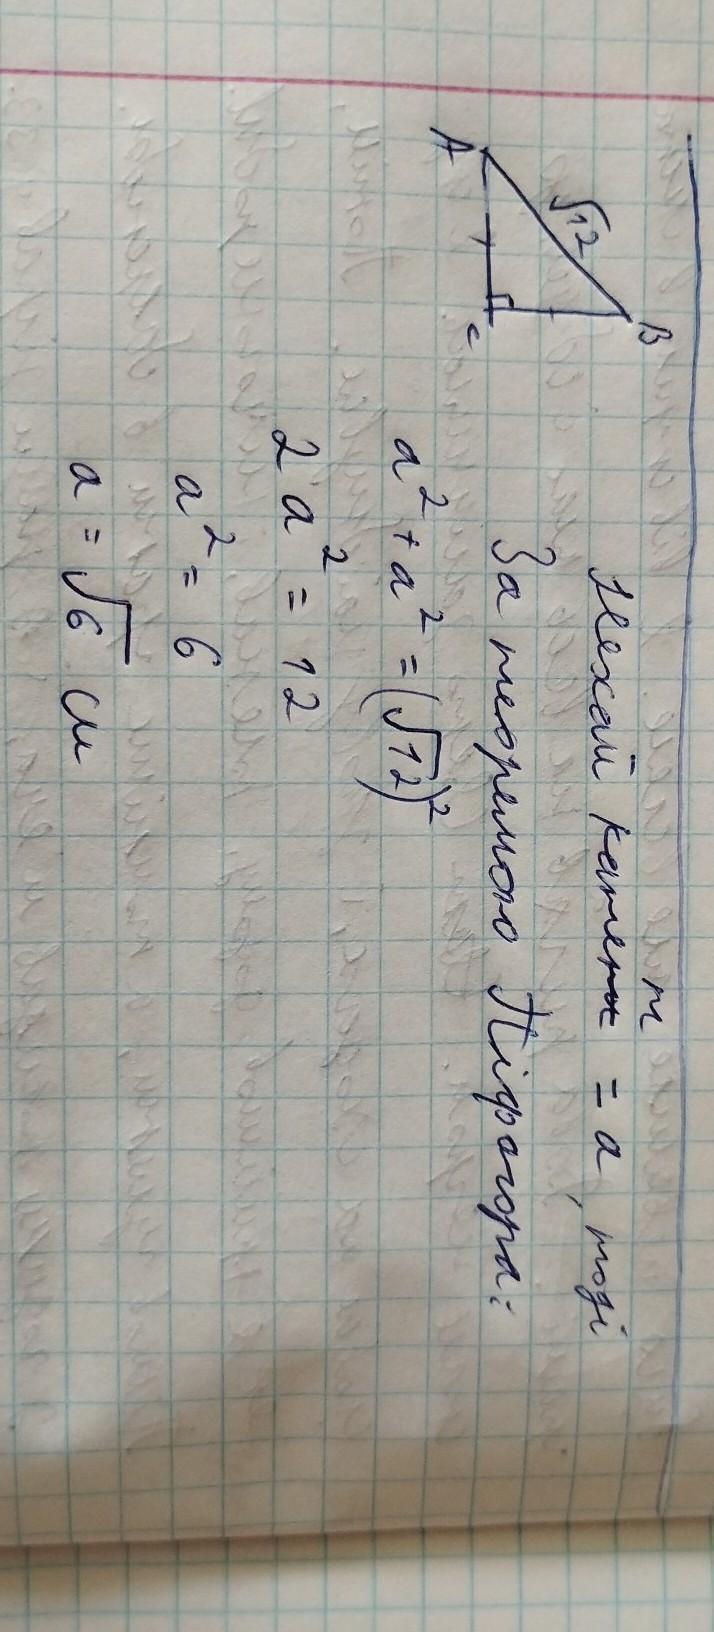 A
B
C
√12
Нехай катет = a, тоді
За теоремою Піфагора:
a² + a² = (√12)²
2a² = 12
a² = 6
a = √6 см